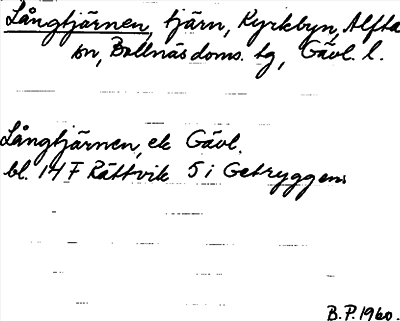 Långtjärnen, tjärn, Kyrkbyn, Alfta
sn, Bollnäs doms. tg, Gävl. l.
Långtjärnen, ek Gävl.
bl. 14 F Rättvik 5 i Getryggen
B.P. 1960.